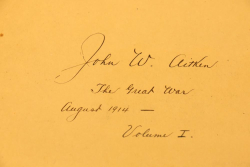 John W. Aitken
The Great War
August 1914 —
Volume I.